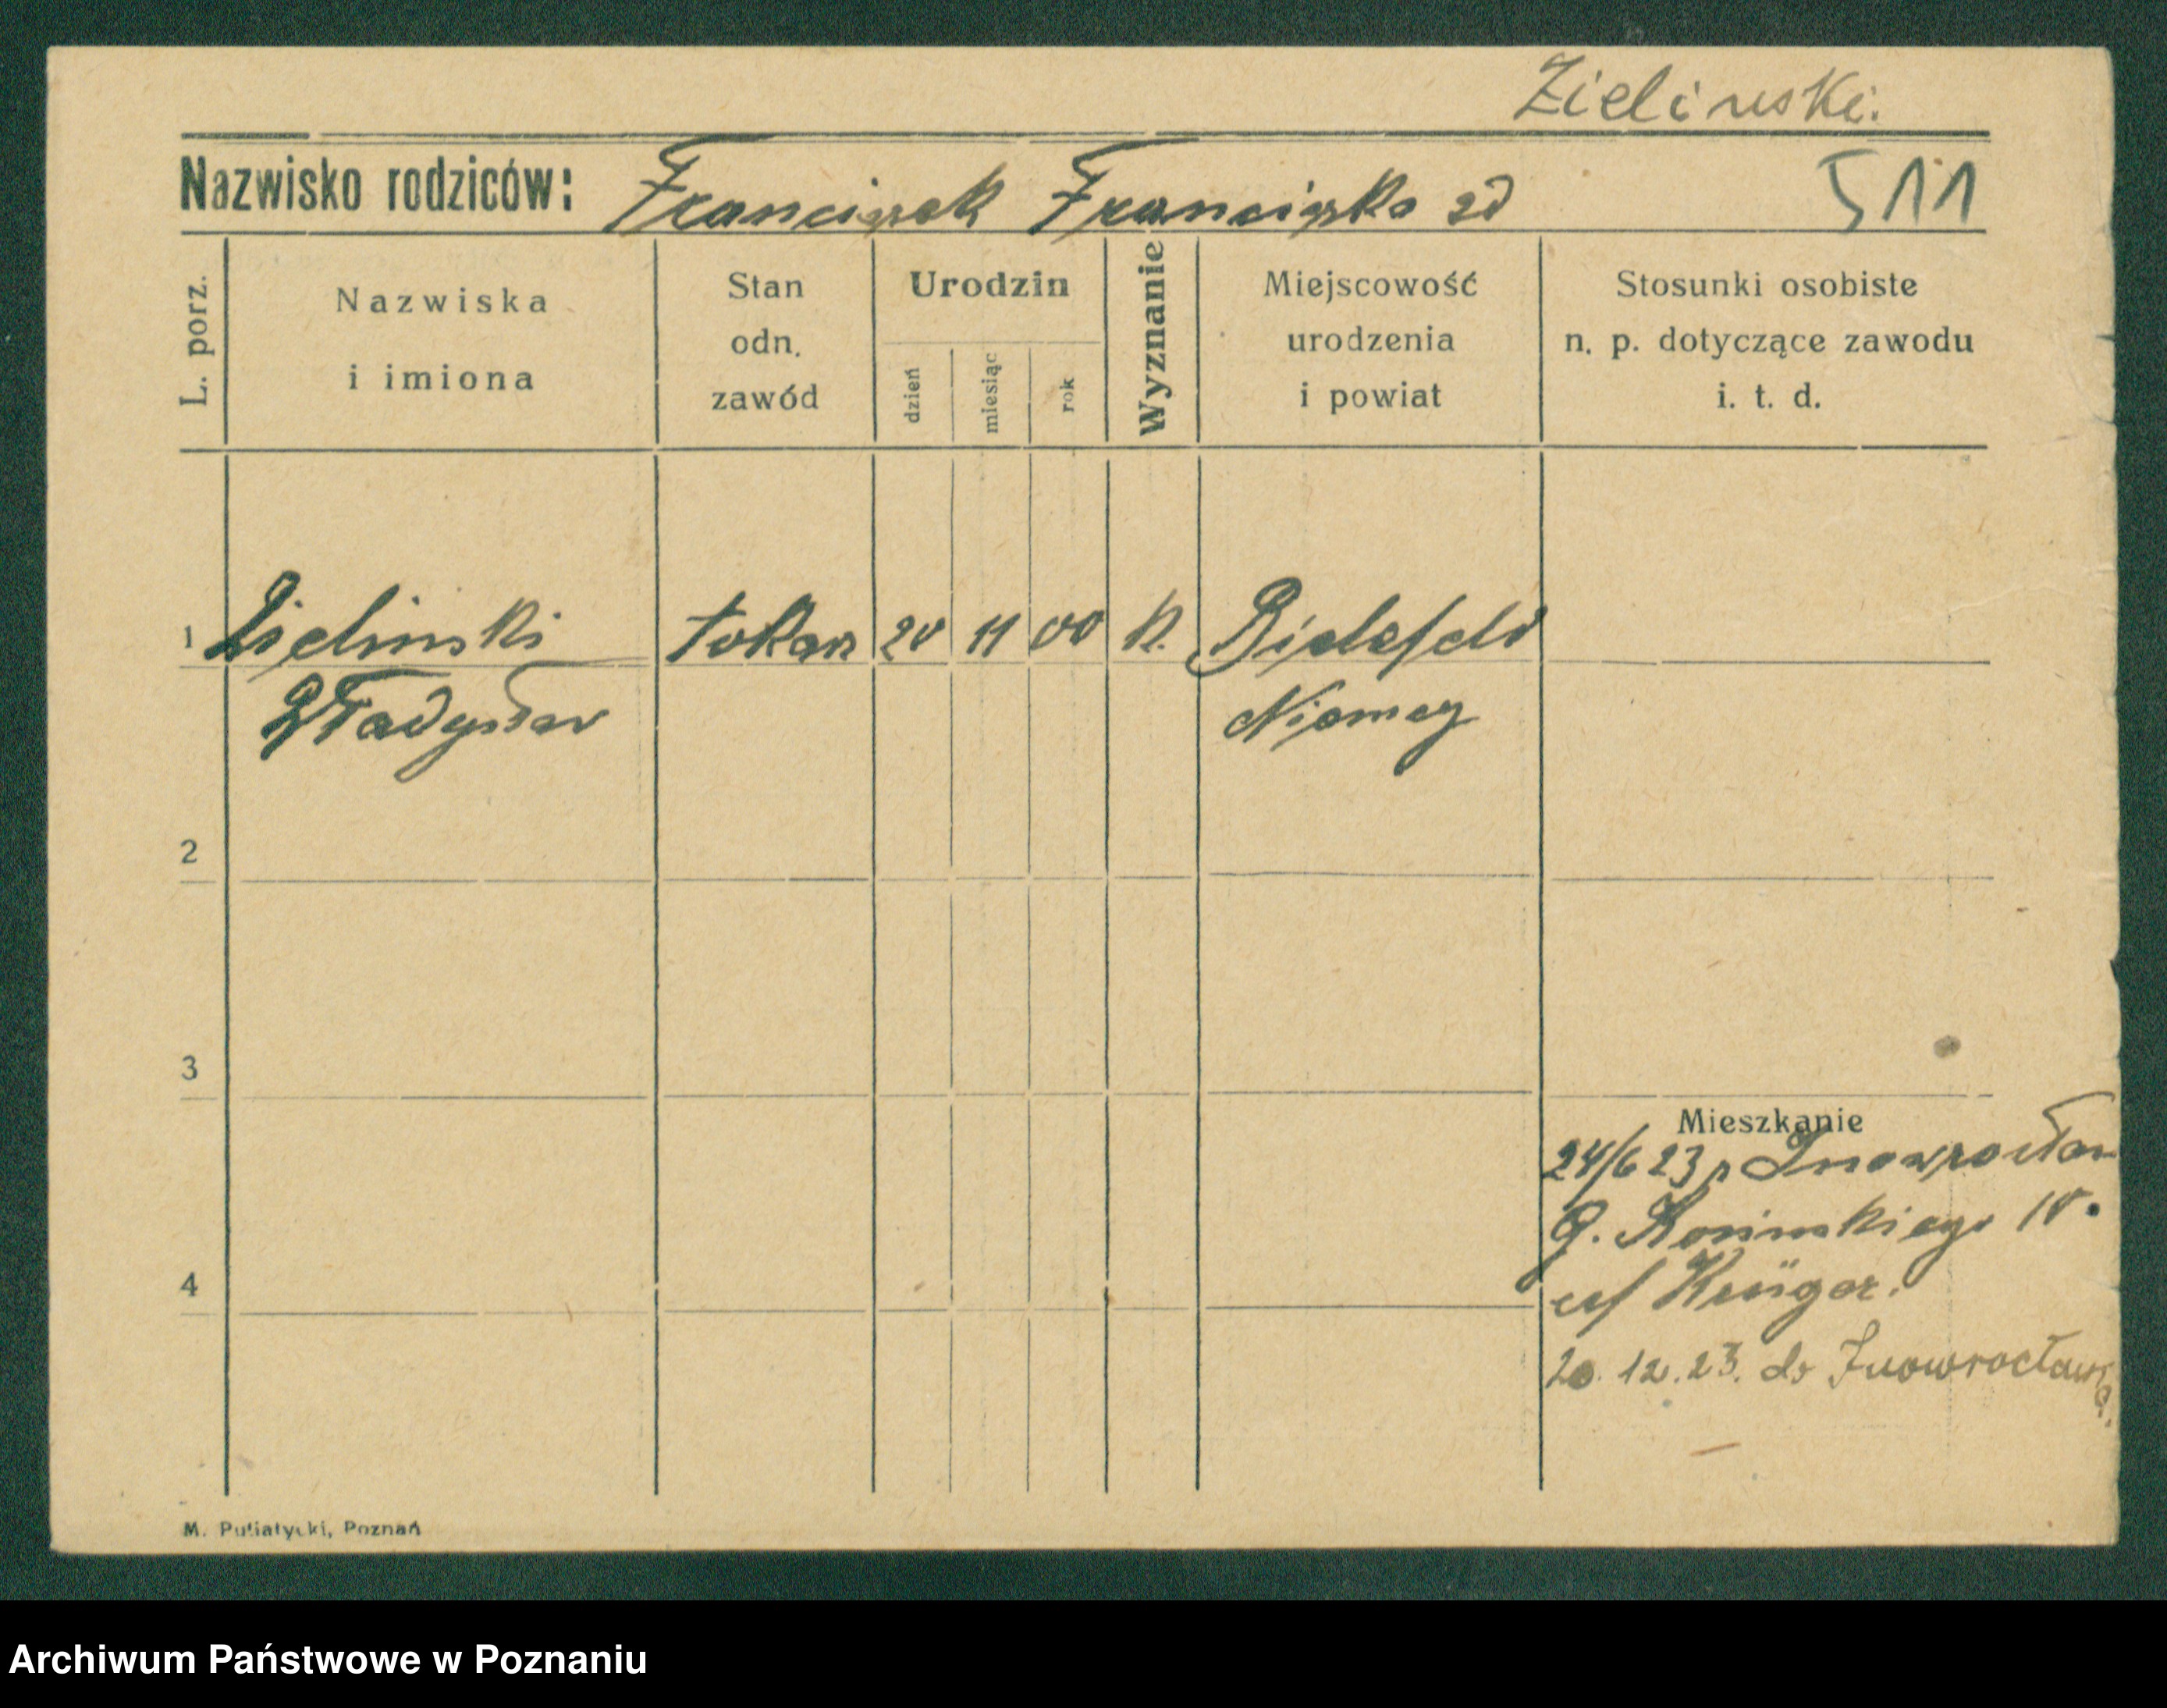 Zielinski.
Nazwisko rodziców: Franciszek Franciszka zd 511
L. porz.
Nazwiska
i imiona
Stan
odn.
zawód
Urodzin
dzień
miesiąc
rok
Wyznanie
Miejscowość
urodzenia
i powiat
Stosunki osobiste
n. p. dotyczące zawodu
i. t. d.
1 Zielinski tokarz 20 11 00 K. Bielefeld
Władysław Niemcy
2
3
Mieszkanie
24/6 23 z Inowrocław
G. Kosinskiego 10.
Krüger.
4
20.12.23. do Inowrocławia.
M. Putiatycki, Poznań
Archiwum Państwowe w Poznaniu